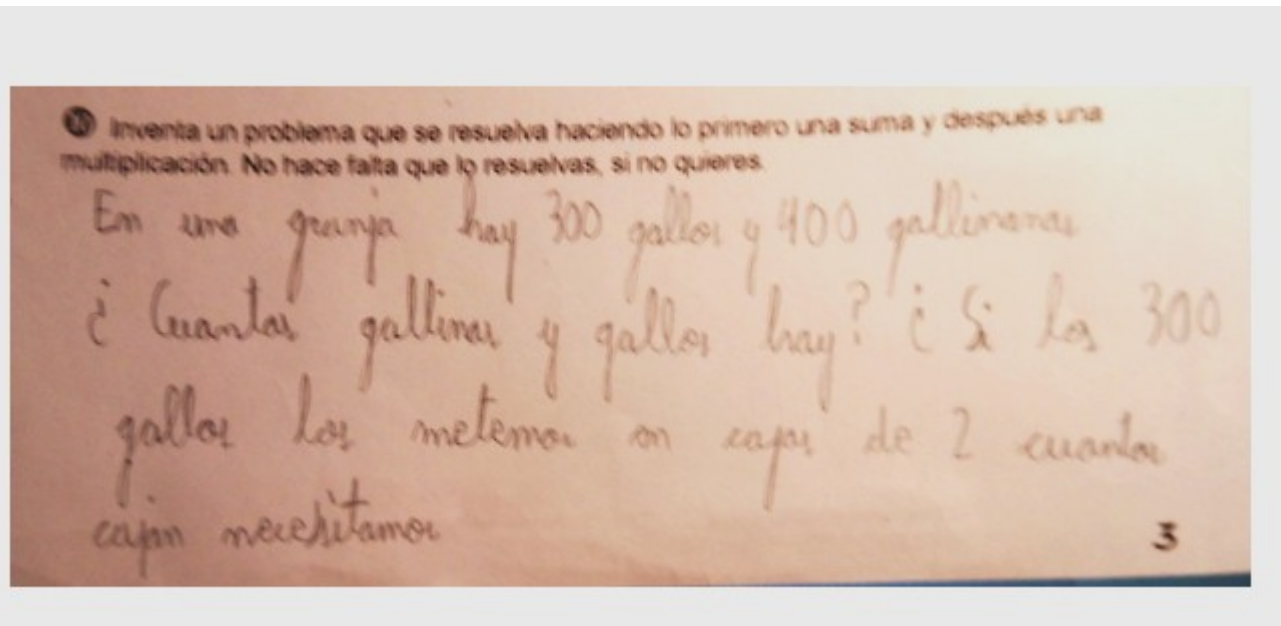 10 Inventa un problema que se resuelva haciendo lo primero una suma y después una
multiplicación. No hace falta que lo resuelvas, si no quieres.
En una granja hay 300 gallos y 400 gallinanas
¿ Cuantas gallinas y gallos hay? ¿ Si los 300
gallos los metemos en cajas de 2 cuantas
cajan necesitamos
3